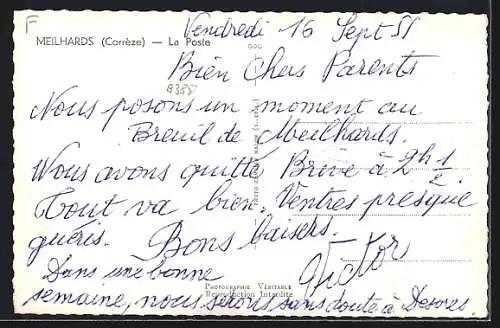 F
Vendredi 16 Sept 55
MEILHARDS (Corrèze) — La Poste
Bien Chers Parents
8385
Nous posons un moment au
Breuil de Meilhards.
Nous avons quitté Brive à 2h 1/2.
Tout va bien. Ventres presque
guéris. Bons baisers.
Victor
Dans une bonne
PHOTOGRAPHIE VÉRITABLE
Reproduction Interdite
semaine, nous serons sans doute à